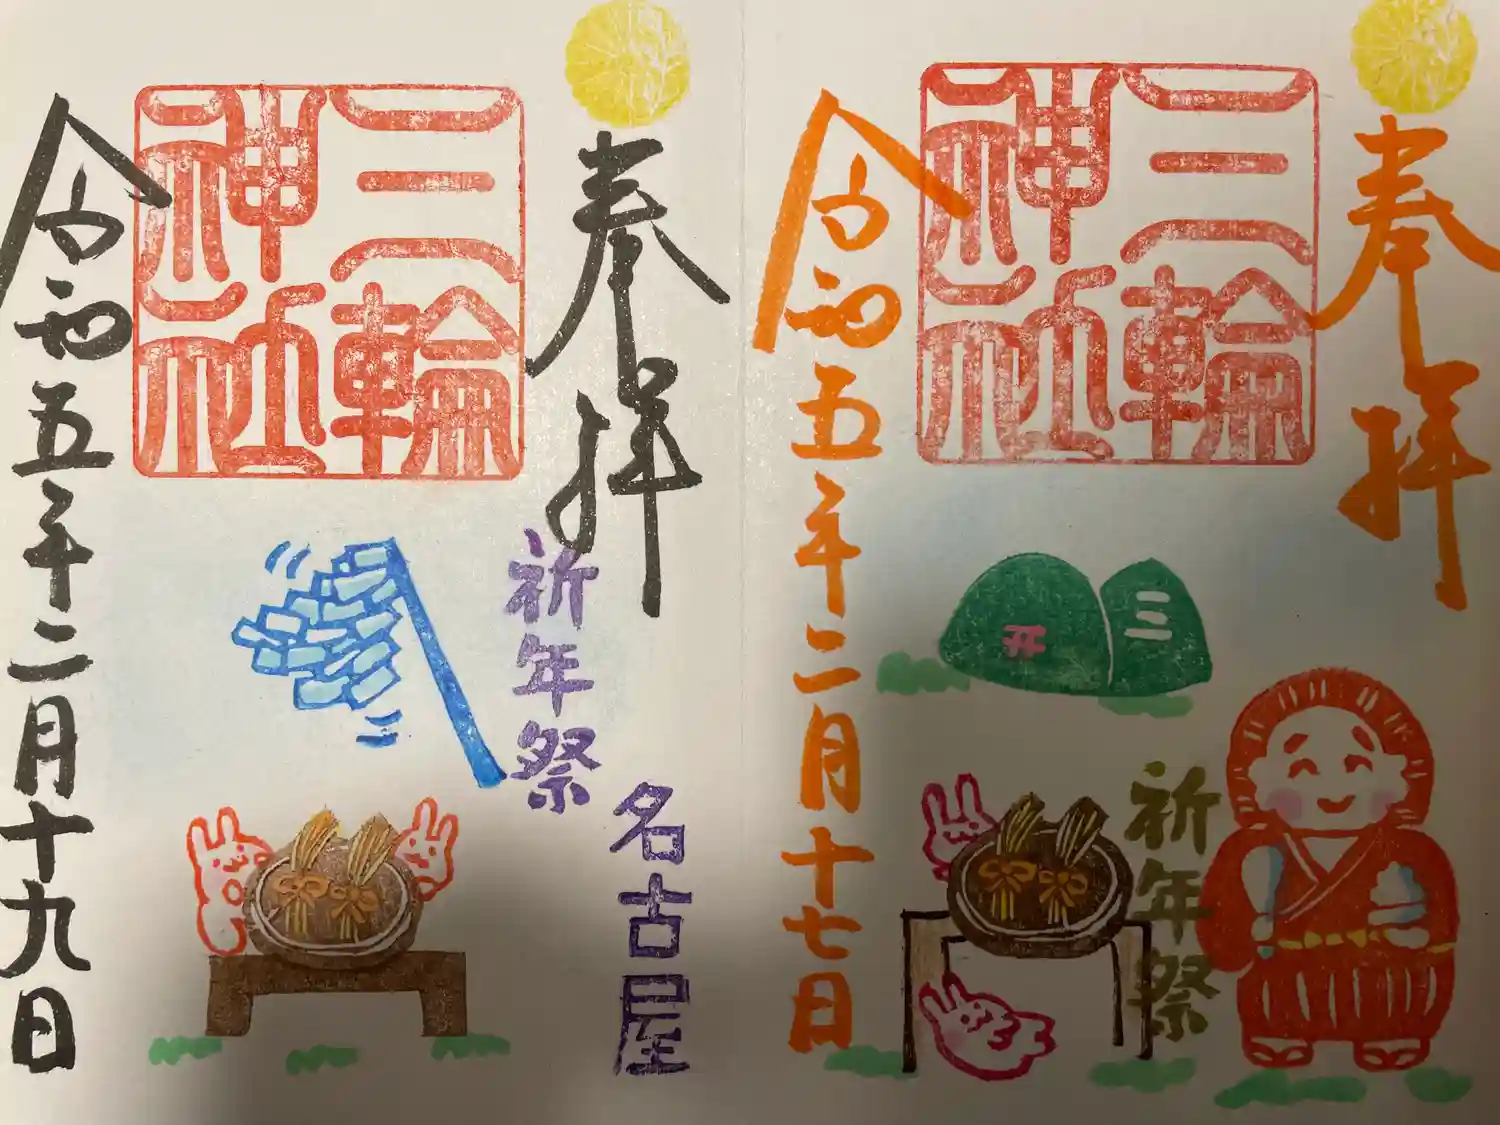 奉拝
三輪
神社
三
开
祈年祭
令和五年二月十七日
奉拝
三輪
神社
祈年祭
名古屋
令和五年二月十九日